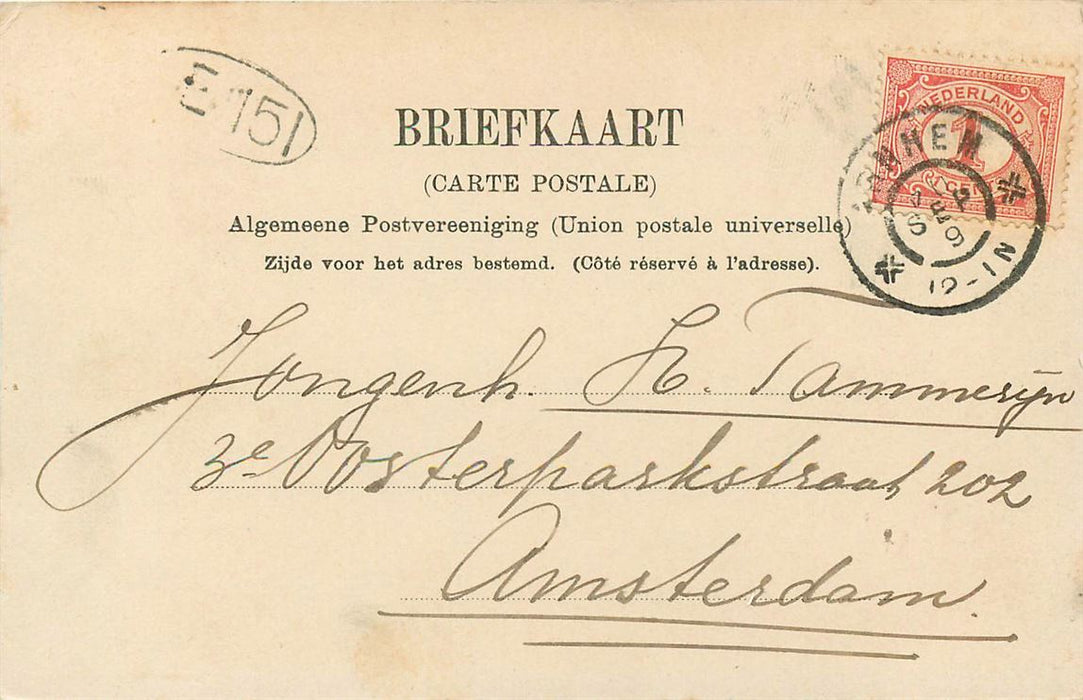 E 151
BRIEFKAART
(CARTE POSTALE)
Algemeene Postvereeniging (Union postale universelle)
Zijde voor het adres bestemd. (Côté réservé à l'adresse).
NEDERLAND
1
CENT
SEP
12-1N
Jongenh. H. Tammerijn
3e Oosterparkstraat 202
Amsterdam.